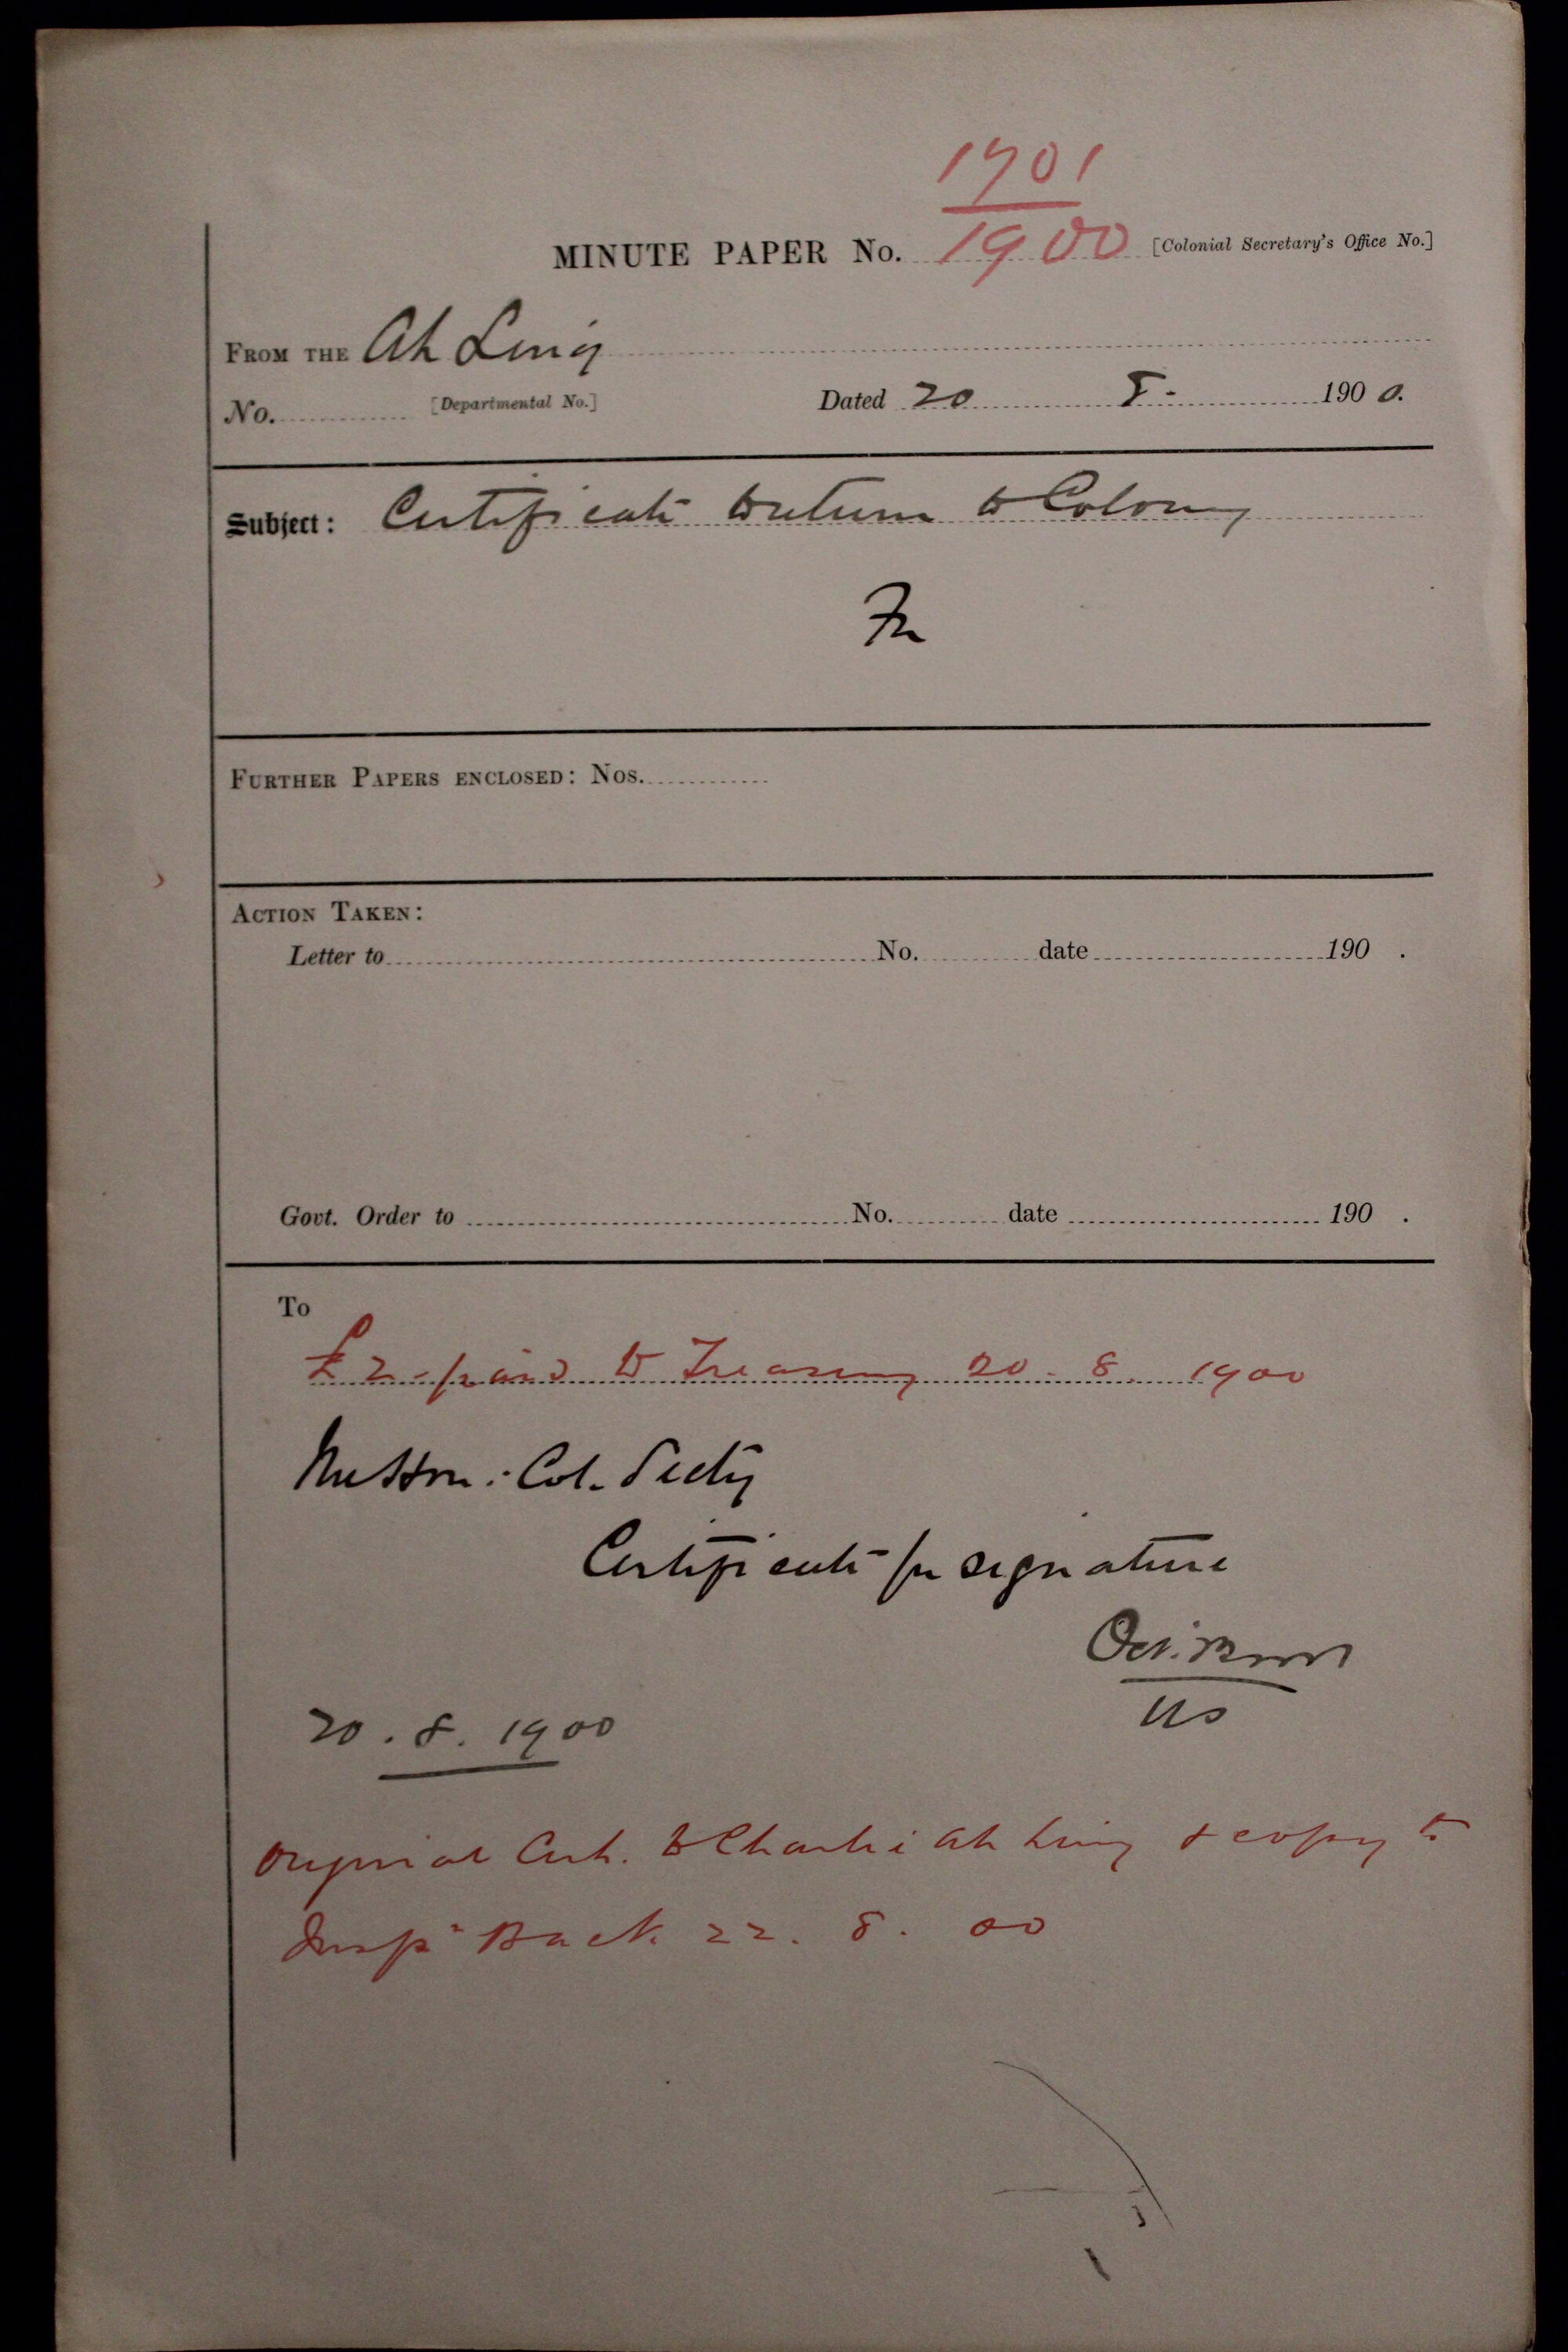 1901
MINUTE PAPER No. 1900 [Colonial Secretary's Office No.]
FROM THE Ah Ling
No. [Departmental No.] Dated 20 8. 1900.
Subject: Certificate to return to Colony
FURTHER PAPERS ENCLOSED: Nos.
ACTION TAKEN:
Letter to No. date 190 .
Govt. Order to No. date 190 .
To
£2 paid to Treasury 20. 8. 1900
Col. Secty
Certificate for signature
Oct. Burt
US
20. 8. 1900
Original Cert. to Charlie Ah Ling & copy to
Insp Back 22. 8. 00